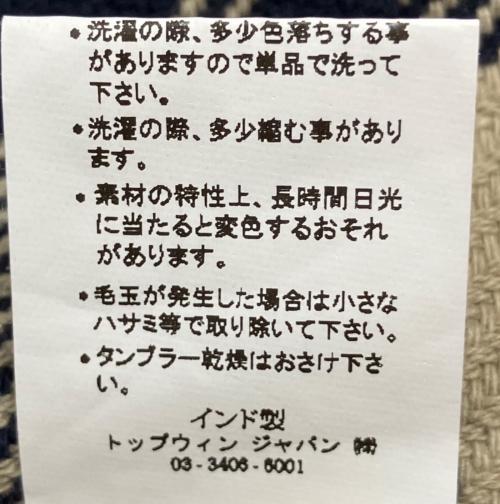 ・洗濯の際、多少色落ちする事
がありますので単品で洗って
下さい。
・洗濯の際、多少縮む事があり
ます。
・素材の特性上、長時間日光
に当たると変色するおそれ
があります。
・毛玉が発生した場合は小さな
ハサミ等で取り除いて下さい。
・タンブラー乾燥はおさけ下さ
い。
インド製
トップウィン ジャパン ㈱
03-3406-6001